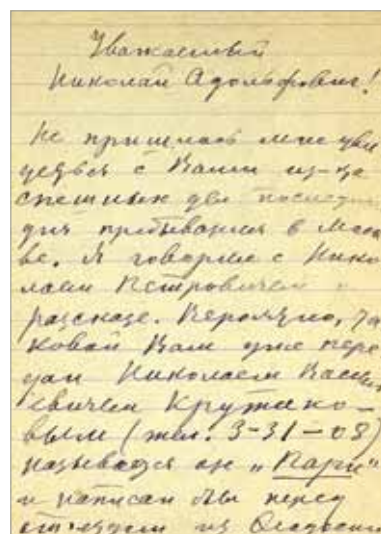 Уважаемый
Николай Адольфович!
Не пришлось мне уви
деться с Вами из-за
спешных дел последн
дня пребывания в Моск
ве. Я говорил с Нико
лаем Петровичем о
рассказе. Вероятно, та
ковой Вам уже пере
дан Николаем Василь
евичем Крутико-
вым (тел. 3-31-08)
называется он „Пари"
и написан был перед
отъездом из